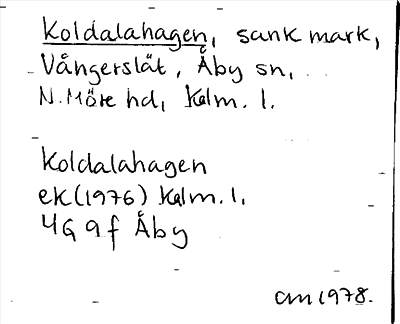 Koldalahagen, sank mark,
Vångerslät, Åby sn,
N. Möre hd, Kalm. l.
Koldalahagen
ek (1976) Kalm. l.
4G 9f Åby
am 1978.